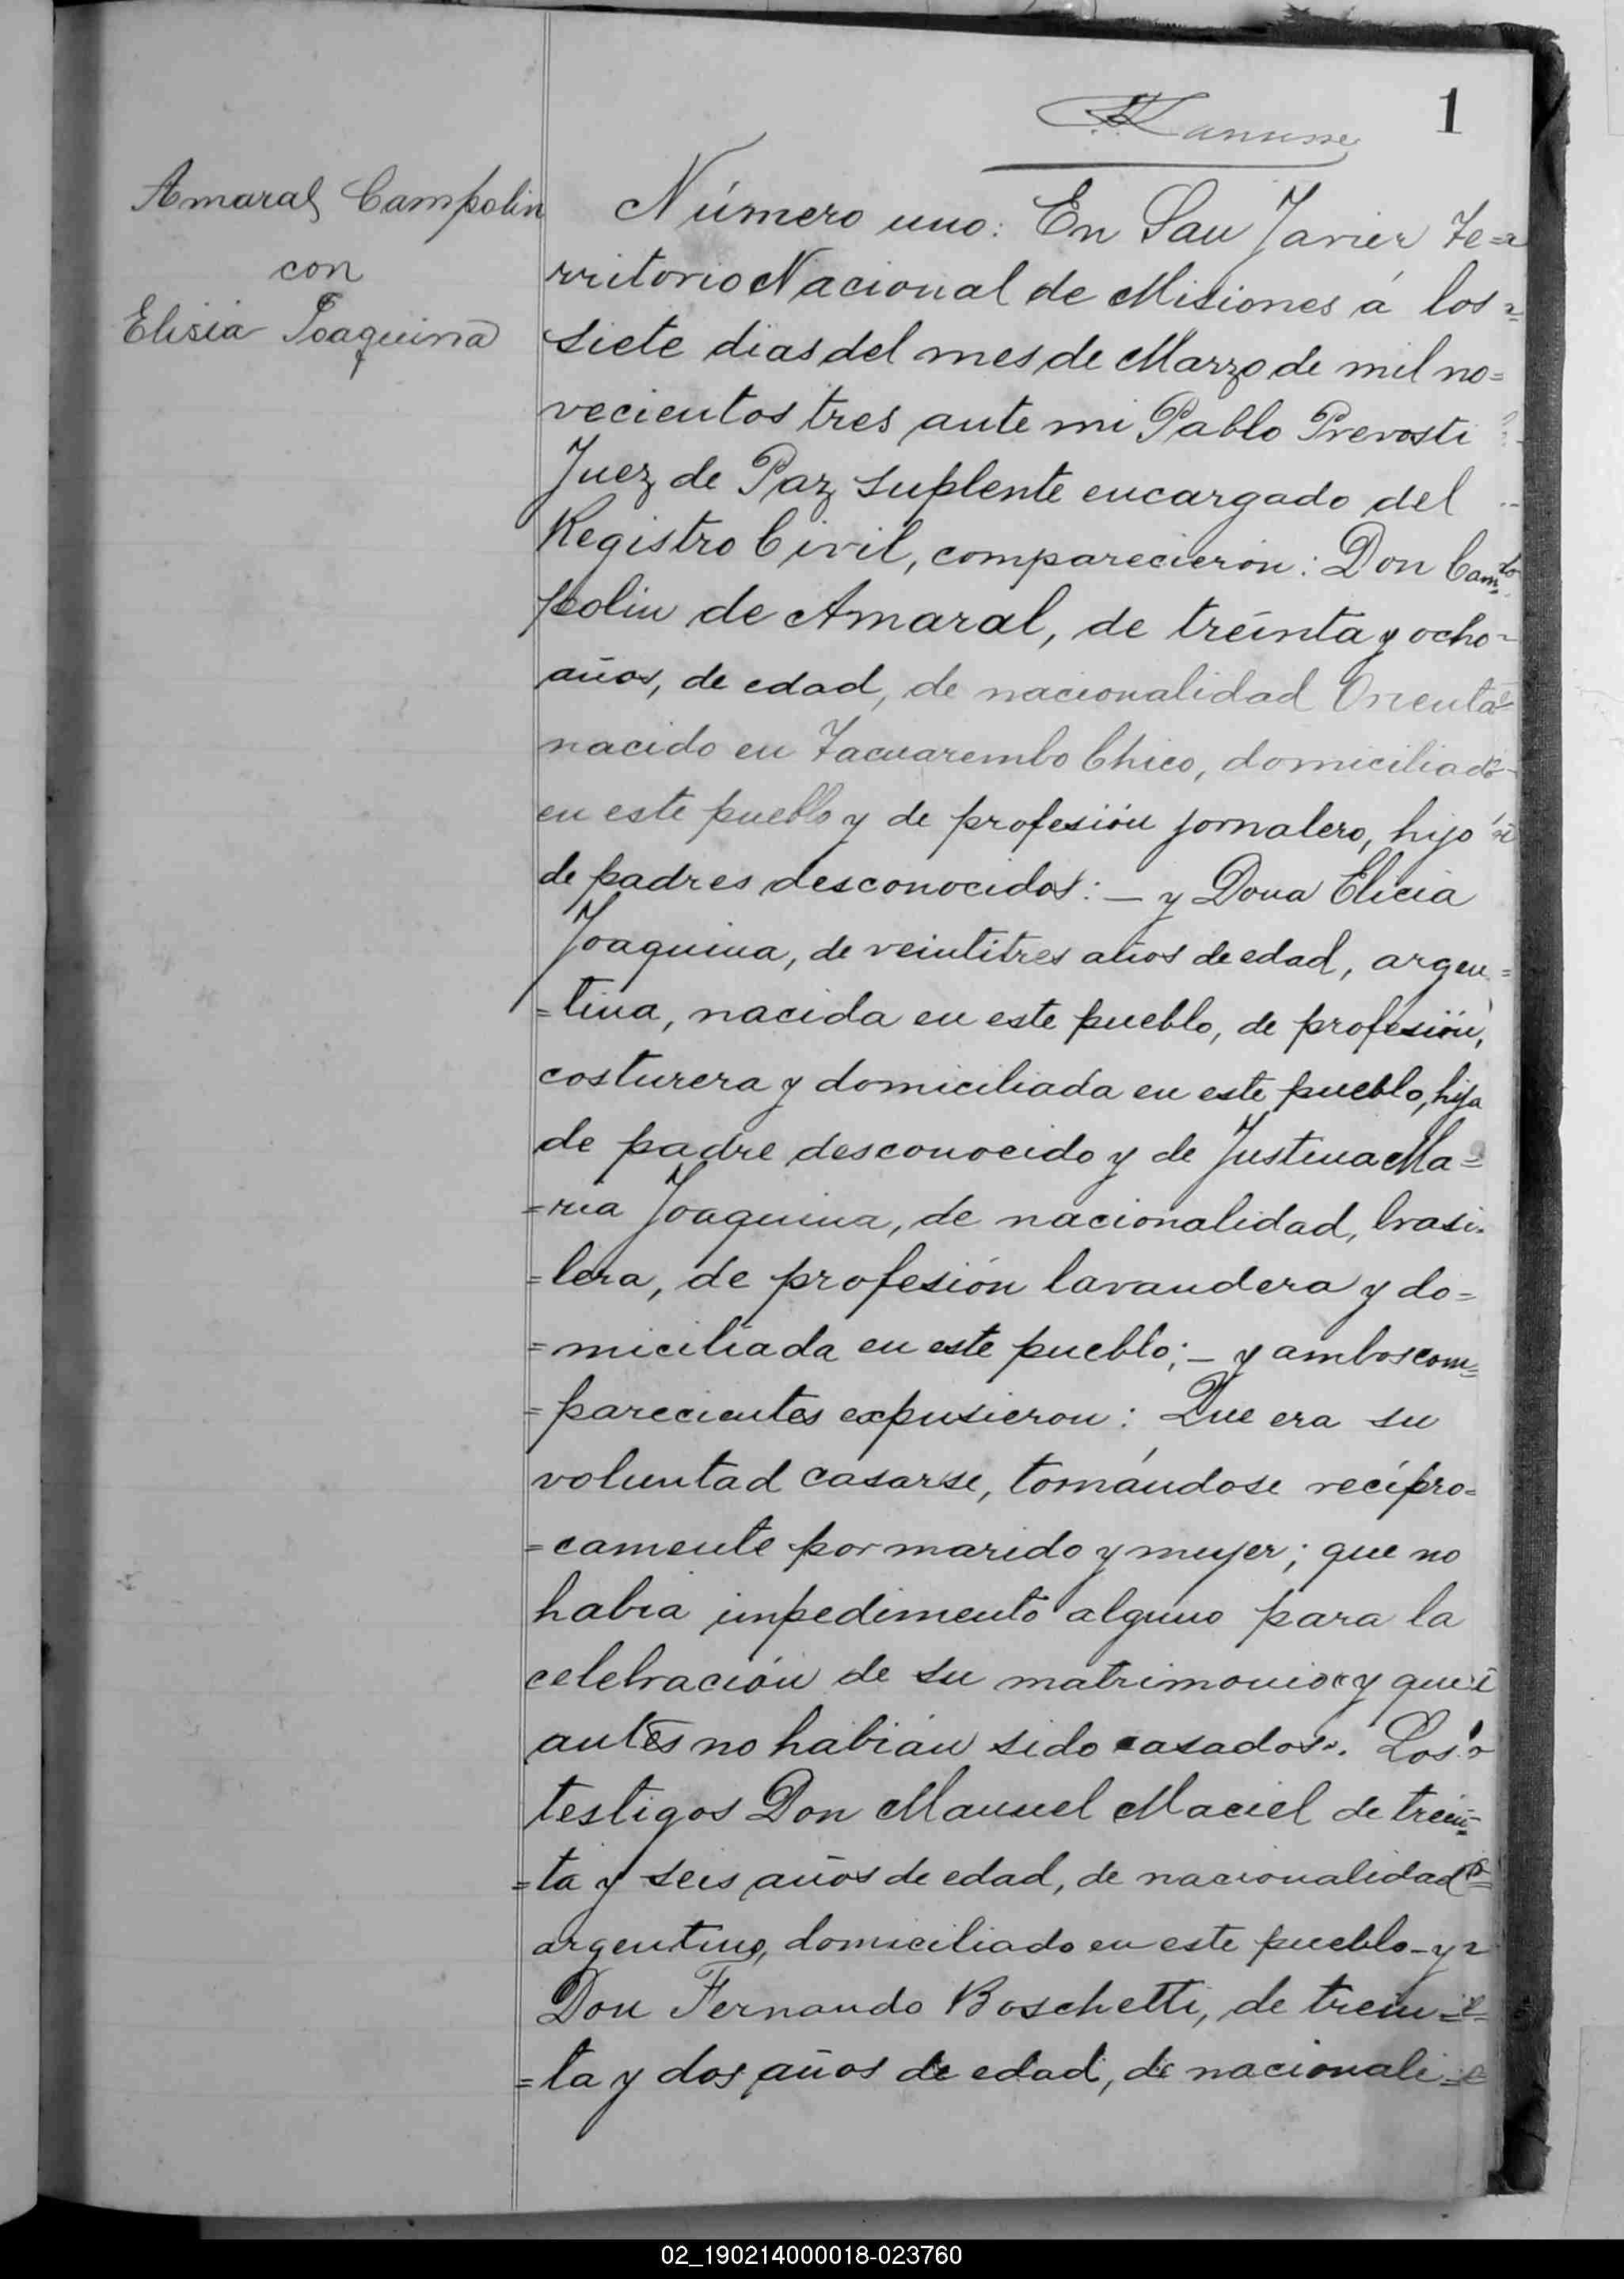 1
Amaral Campolin
con
Elisia Joaquina
Número uno: En San Javier Te=
rritorio Nacional de Misiones á los
siete dias del mes de Marzo de mil no=
vecientos tres ante mi Pablo Prevosti
Juez de Paz suplente encargado del
Registro Civil, comparecieron: Don Cam=
polin de Amaral, de treinta y ocho
años, de edad, de nacionalidad Oriental
nacido en Tacuarembo Chico, domiciliado
en este pueblo y de profesión jornalero, hijo
de padres desconocidos: — y Dona Elicia
Joaquina, de veintitres años de edad, argen=
=tina, nacida en este pueblo, de profesión,
costurera y domiciliada en este pueblo, hija
de padre desconocido y de Justina Ma=
=ria Joaquina, de nacionalidad, brasi=
=lera, de profesión lavandera y do=
=miciliada en este pueblo; — y ambos com=
=parecientes expusieron: Que era su
voluntad casarse, tomándose recípro=
=camente por marido y mujer; que no
habia impedimento alguno para la
celebración de su matrimonio y que
antes no habián sido casados. Los
testigos Don Manuel Maciel de trein=
=ta y seis años de edad, de nacionalidad
argentino, domiciliado en este pueblo - y
Don Fernando Boschetti, de trein=
=ta y dos años de edad, de nacionali=
02_190214000018-023760